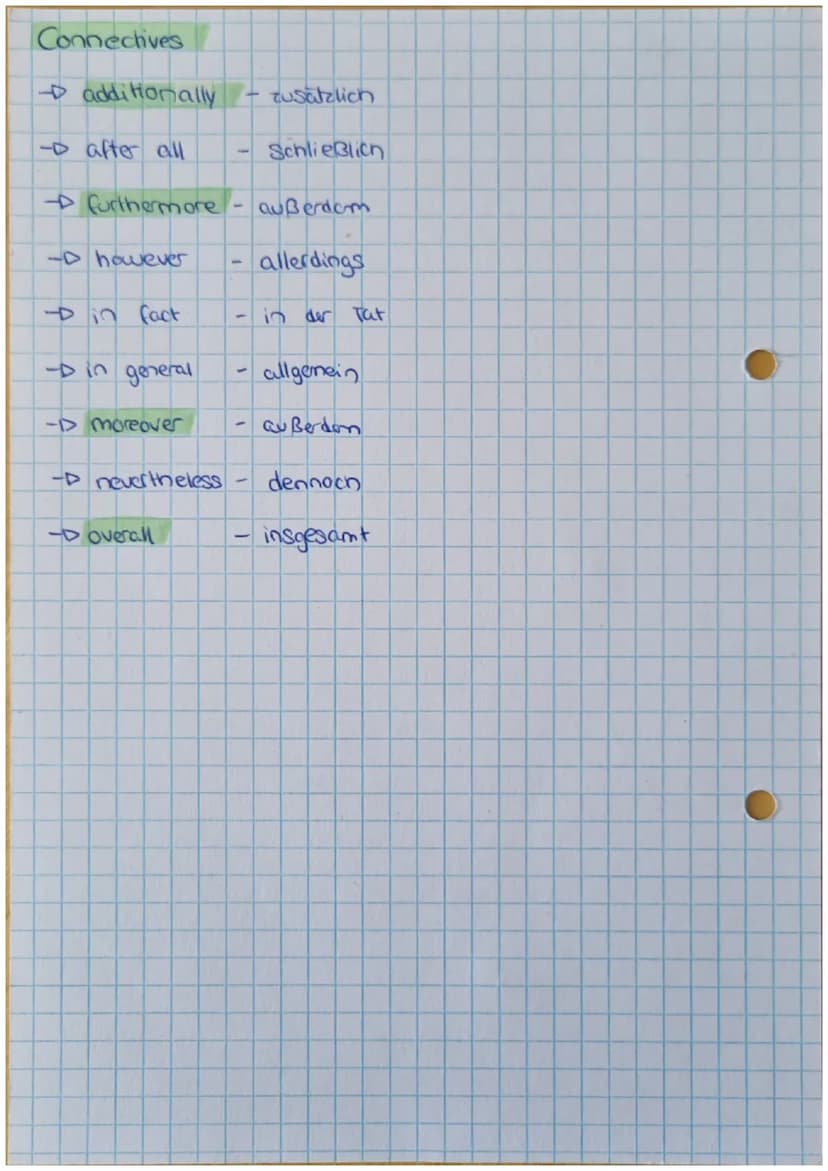 Connectives
→ additionally - zusätzlich
→ after all - schließlich
→ furthermore - außerdem
→ however - allerdings
→ in fact - in der Tat
→ in general - allgemein
→ moreover - außerdem
→ nevertheless - dennoch
→ overall - insgesamt